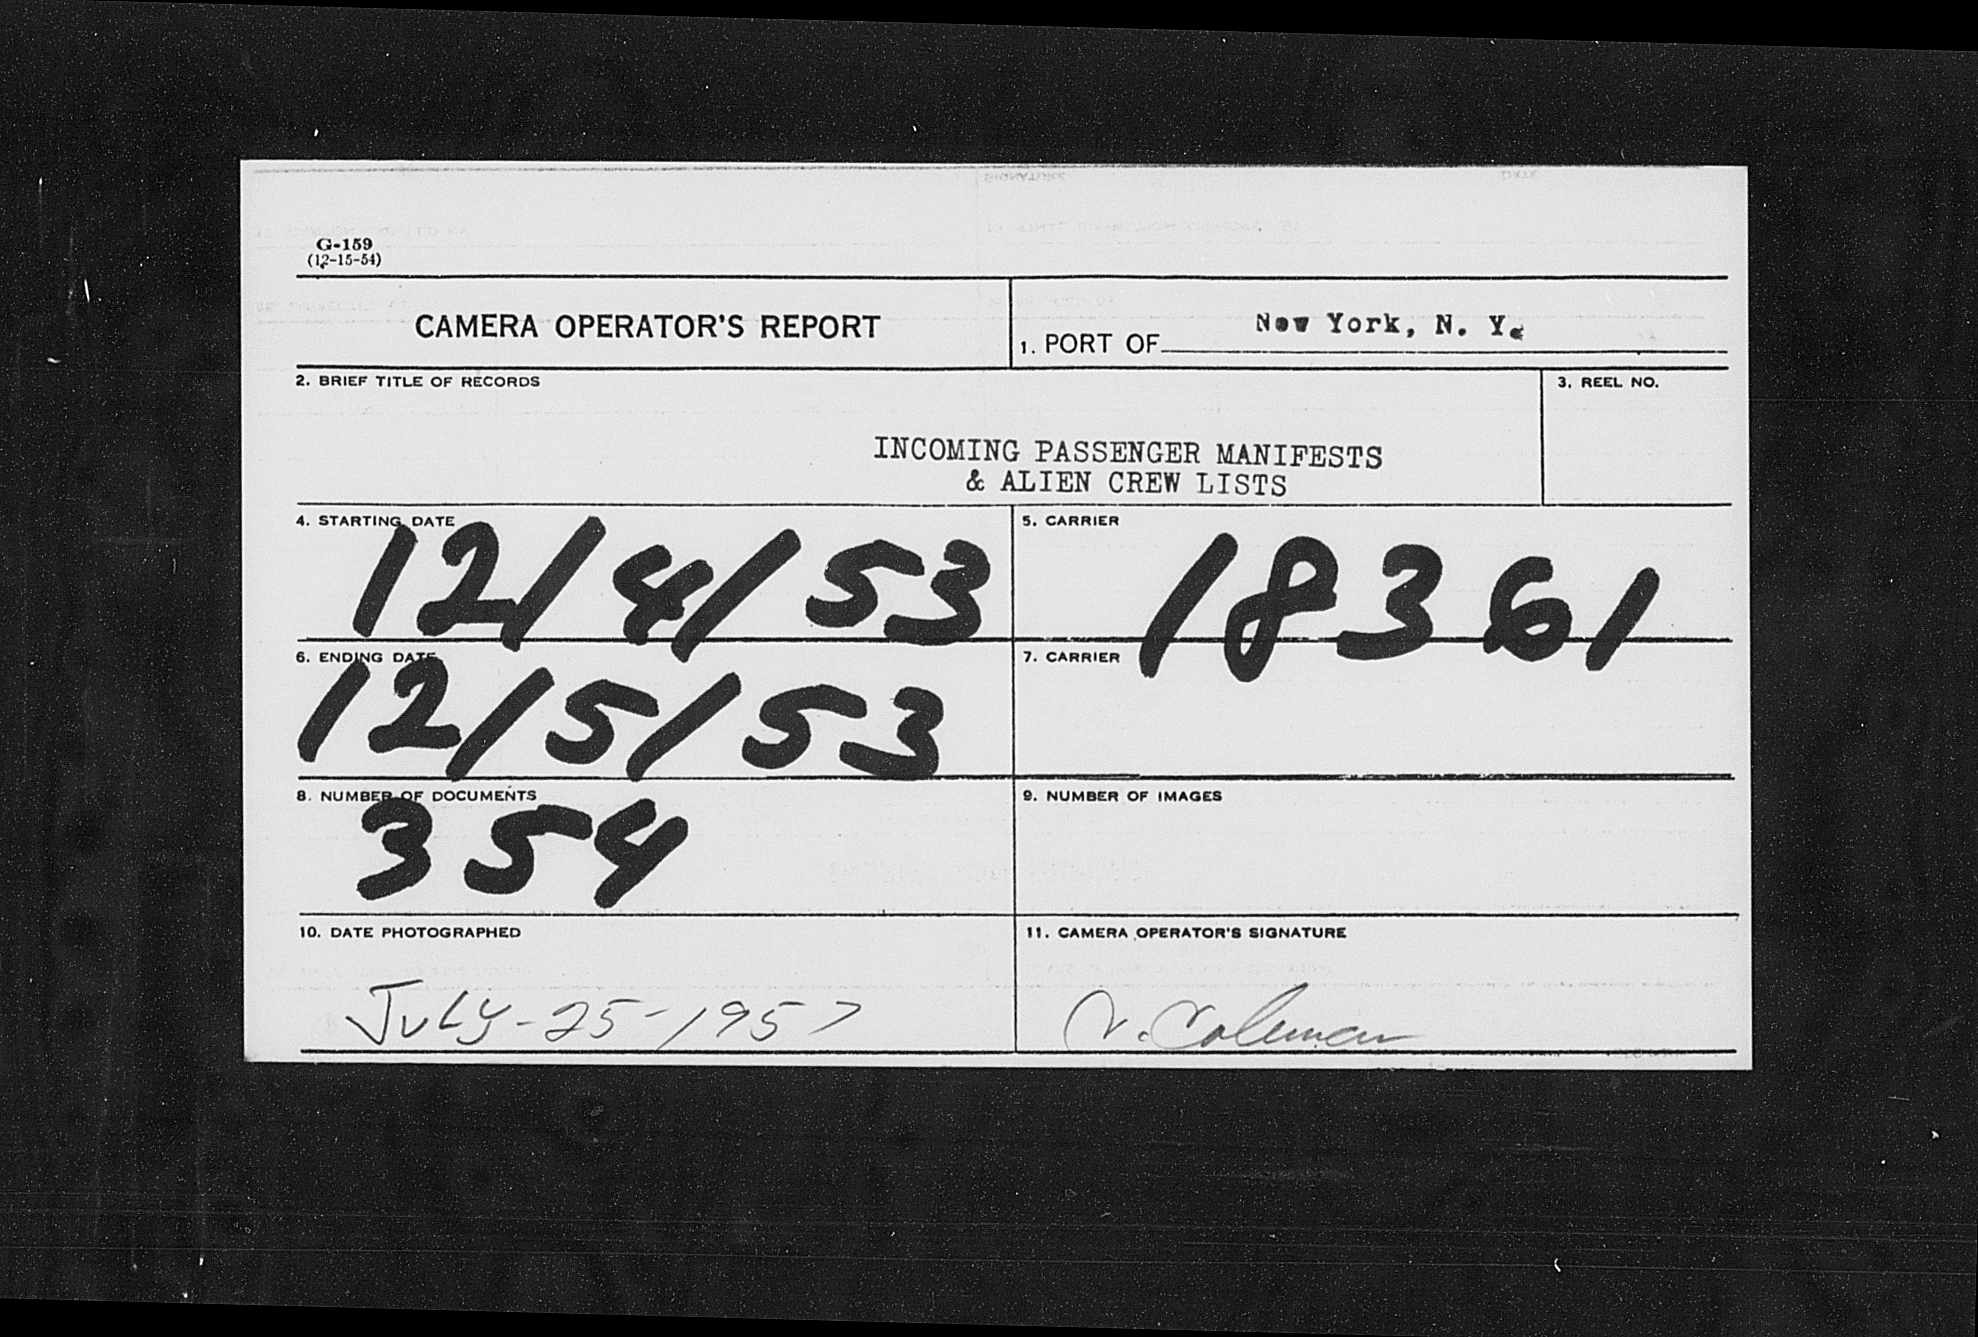 G-159
(12-15-54)
CAMERA OPERATOR'S REPORT
1. PORT OF New York, N. Y.
2. BRIEF TITLE OF RECORDS
3. REEL NO.
INCOMING PASSENGER MANIFESTS
& ALIEN CREW LISTS
4. STARTING DATE
12/4/53
5. CARRIER
18361
6. ENDING DATE
12/5/53
7. CARRIER
8. NUMBER OF DOCUMENTS
354
9. NUMBER OF IMAGES
10. DATE PHOTOGRAPHED
JuLy-25-1957
11. CAMERA OPERATOR'S SIGNATURE
Coleman